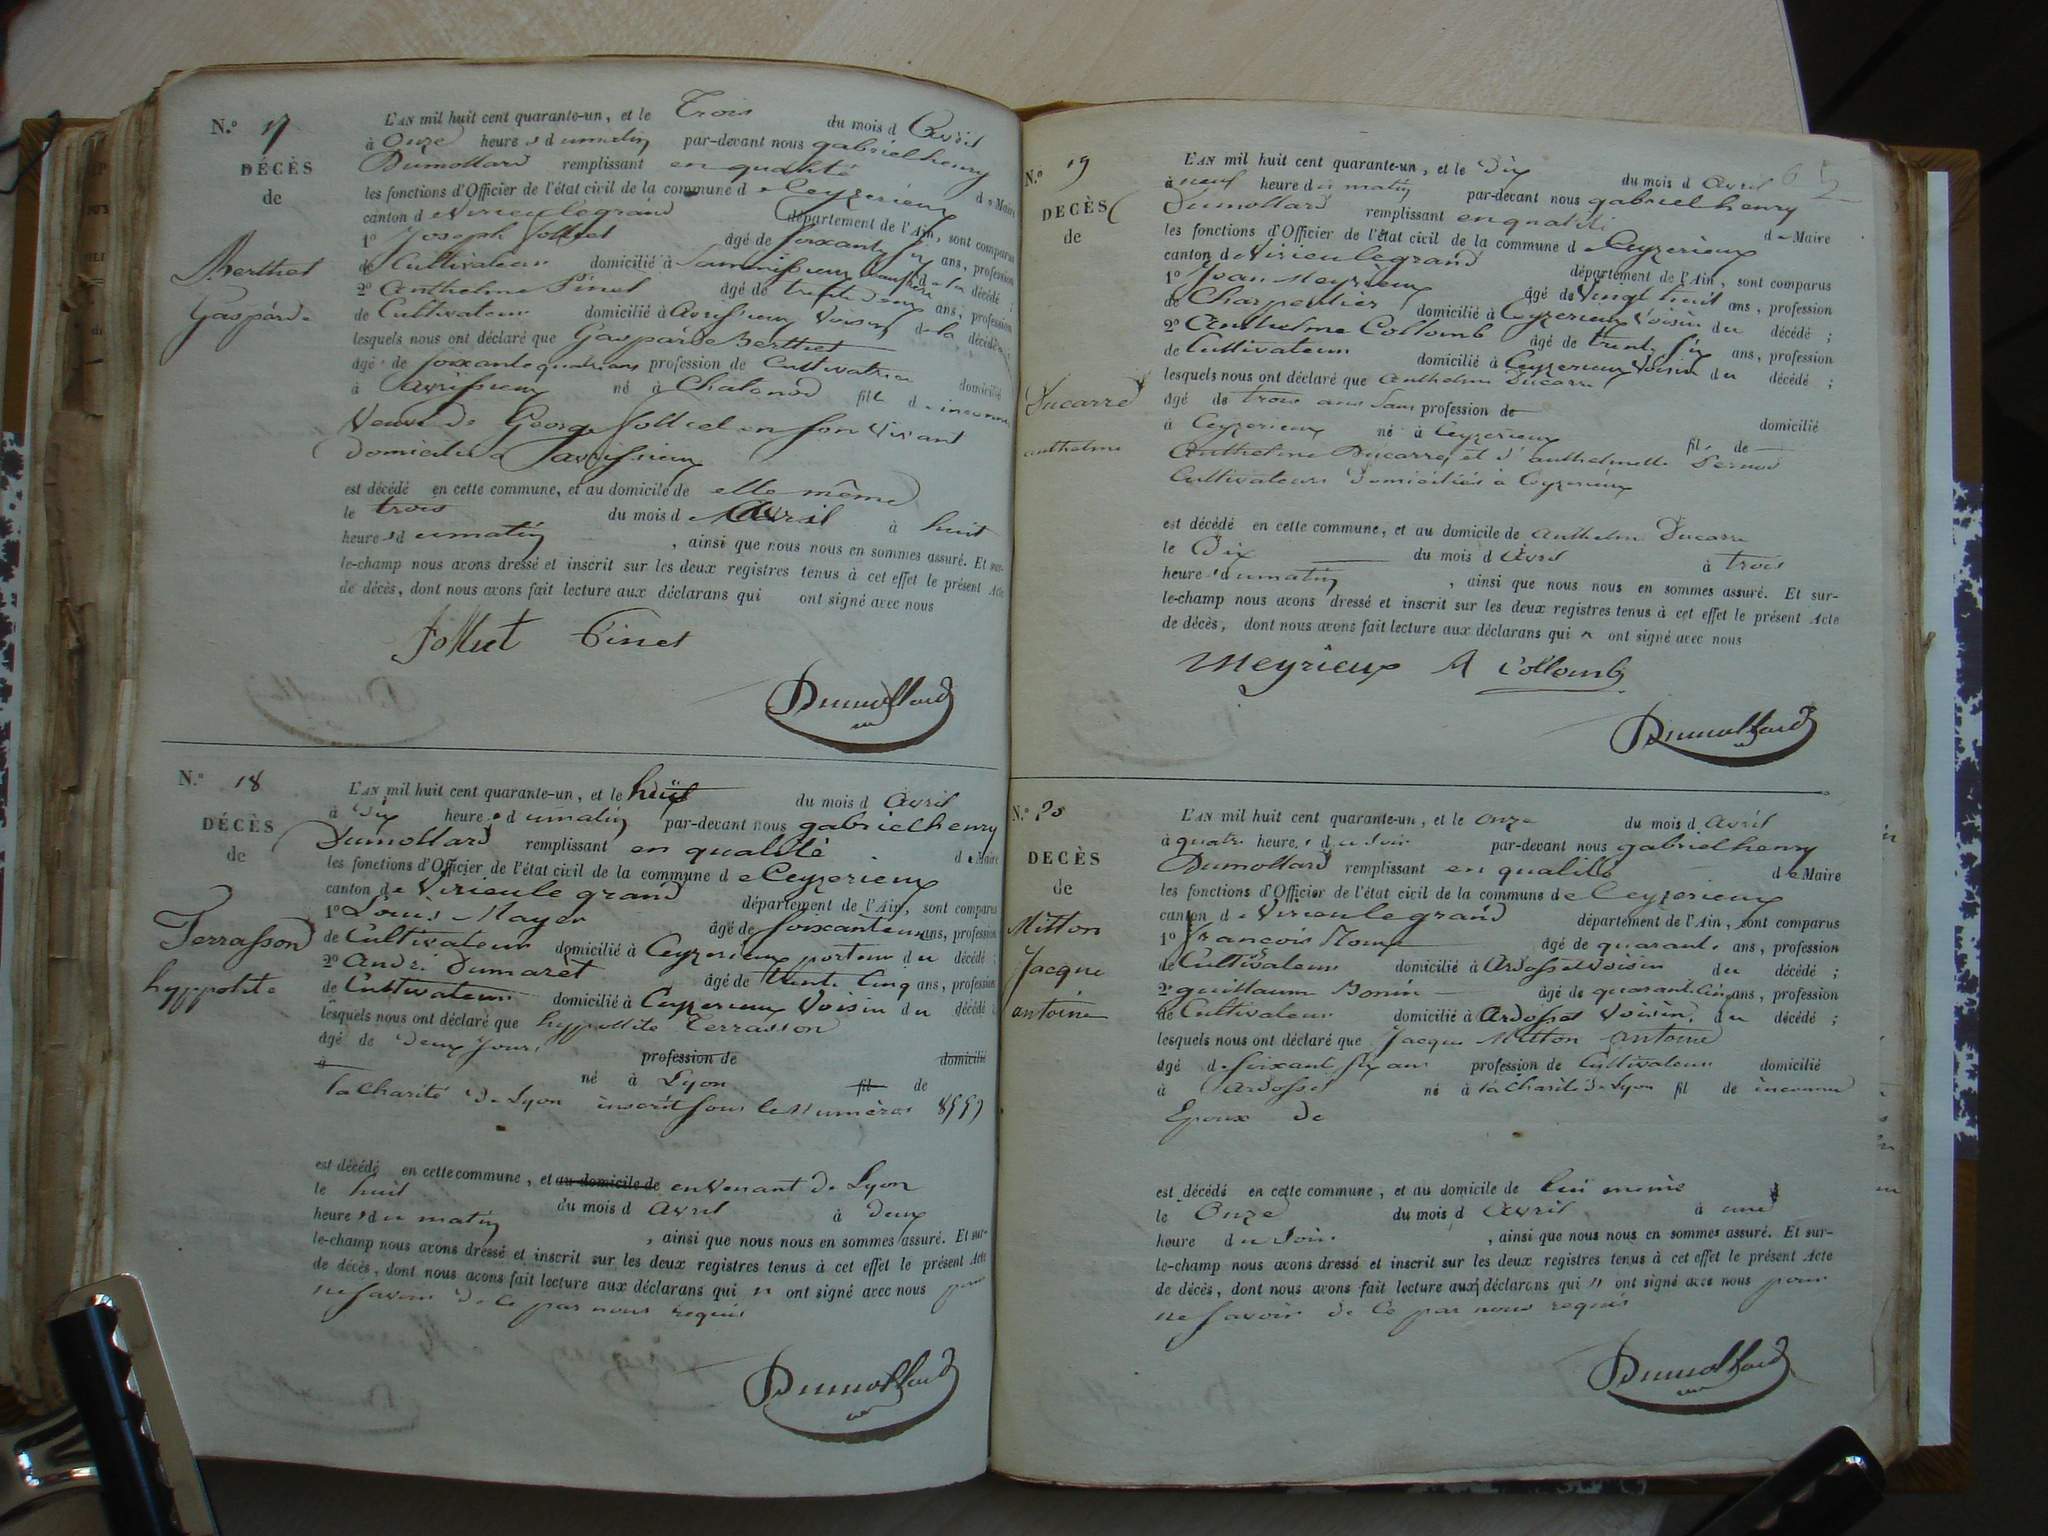 N.o 17
DÉCÈS
de
Berthet
Gasparde
L'AN mil huit cent quarante-un, et le Trois du mois d Avril
à Onze heures du matin par-devant nous gabriel henry
Dumollard remplissant en qualité de Maire
les fonctions d'Officier de l'état civil de la commune de Ceyzerieux
canton de Virieulegrand département de l'Ain, sont comparus
1o Joseph Jolliet âgé de soixante ans, profession
de Cultivateur domicilié à de la décédé ;
2o Anthelme Pinet âgé de trente deux ans, profession
de Cultivateur domicilié à Avrissieux Voisin de la décédée
lesquels nous ont déclaré que Gasparde Berthet
âgé de soixante quatre ans profession de Cultivatrice domicilié
à Avrissieux né à Chatonod fille d inconnu
Veuve de George Jolliet en son Vivant
domicilié à avrissieux
est décédé en cette commune, et au domicile de elle même
le trois du mois d Avril à huit
heures du matin , ainsi que nous nous en sommes assuré. Et sur-
le-champ nous avons dressé et inscrit sur les deux registres tenus à cet effet le présent Acte
de décès, dont nous avons fait lecture aux déclarans qui ont signé avec nous
Jolliet Pinet
Dumollard
N.o 18
DÉCÈS
de
Terrasson
hyppolite
L'AN mil huit cent quarante-un, et le huit du mois d Avril
à Dix heures du matin par-devant nous gabriel henry
Dumollard remplissant en qualité de Maire
les fonctions d'Officier de l'état civil de la commune de Ceyzerieux
canton de Virieule grand département de l'Ain, sont comparus
1o Louis Mayer âgé de soixante un ans, profession
de Cultivateur domicilié à Ceyzerieux porteur du décédé ;
2o André Dumaret âgé de trente Cinq ans, profession
de Cultivateur domicilié à Ceyzerieux Voisin du décédé ;
lesquels nous ont déclaré que hyppolite Terrasson
âgé de deux jours profession de domicilié
à né à Lyon fil de
la Charité de Lyon inscrit sous le Numéro
est décédé en cette commune, et au domicile de en venant de Lyon
le huit du mois d Avril à deux
heures du matin , ainsi que nous nous en sommes assuré. Et sur-
le-champ nous avons dressé et inscrit sur les deux registres tenus à cet effet le présent Acte
de décès, dont nous avons fait lecture aux déclarans qui n ont signé avec nous pour
ne savoir de ce par nous requis
Dumollard
N.o 19
DÉCÈS
de
Ducarre
anthelme
L'AN mil huit cent quarante-un, et le Dix du mois d Avril
à neuf heure du matin par-devant nous gabriel henry
Dumollard remplissant en qualité de Maire
les fonctions d'Officier de l'état civil de la commune de Ceyzerieux
canton de Virieulegrand département de l'Ain, sont comparus
1o Jean Meyrieux âgé de Vingt huit ans, profession
de Charpentier domicilié à Ceyzerieux Voisin du décédé ;
2o Anthelme Collomb âgé de trente six ans, profession
de Cultivateur domicilié à Ceyzerieux Voisin du décédé ;
lesquels nous ont déclaré que anthelme Ducarre
âgé de trois ans Sans profession de domicilié
à Ceyzerieux né à Ceyzerieux fils de
Anthelme Ducarre, et d' anthelmette Pernod
Cultivateurs Domiciliés à Ceyzerieux
est décédé en cette commune, et au domicile de anthelme Ducarre
le Dix du mois d Avril à trois
heures du matin , ainsi que nous nous en sommes assuré. Et sur-
le-champ nous avons dressé et inscrit sur les deux registres tenus à cet effet le présent Acte
de décès, dont nous avons fait lecture aux déclarans qui ont signé avec nous
Meyrieux A Collomb
Dumollard
N.o 20
DÉCÈS
de
Mitton
Jacque
antoine
L'AN mil huit cent quarante-un, et le onze du mois d Avril
à quatre heures du soir par-devant nous gabriel henry
Dumollard remplissant en qualité de Maire
les fonctions d'Officier de l'état civil de la commune de Ceyzerieux
canton de Virieulegrand département de l'Ain, sont comparus
1o François âgé de quarante ans, profession
de Cultivateur domicilié à Ardosset Voisin du décédé ;
2o guillaume Bonin âgé de quarante Cinq ans, profession
de Cultivateur domicilié à Ardosset Voisin du décédé ;
lesquels nous ont déclaré que Jacque Mitton antoine
âgé de soixante six ans profession de Cultivateur domicilié
à Ardosset né à la Charité de Lyon fil de inconnu
Epoux de
est décédé en cette commune, et au domicile de lui même
le Onze du mois d Avril à une
heure du Soir , ainsi que nous nous en sommes assuré. Et sur-
le-champ nous avons dressé et inscrit sur les deux registres tenus à cet effet le présent Acte
de décès, dont nous avons fait lecture aux déclarans qui n ont signé avec nous pour
ne savoir de ce par nous requis
Dumollard